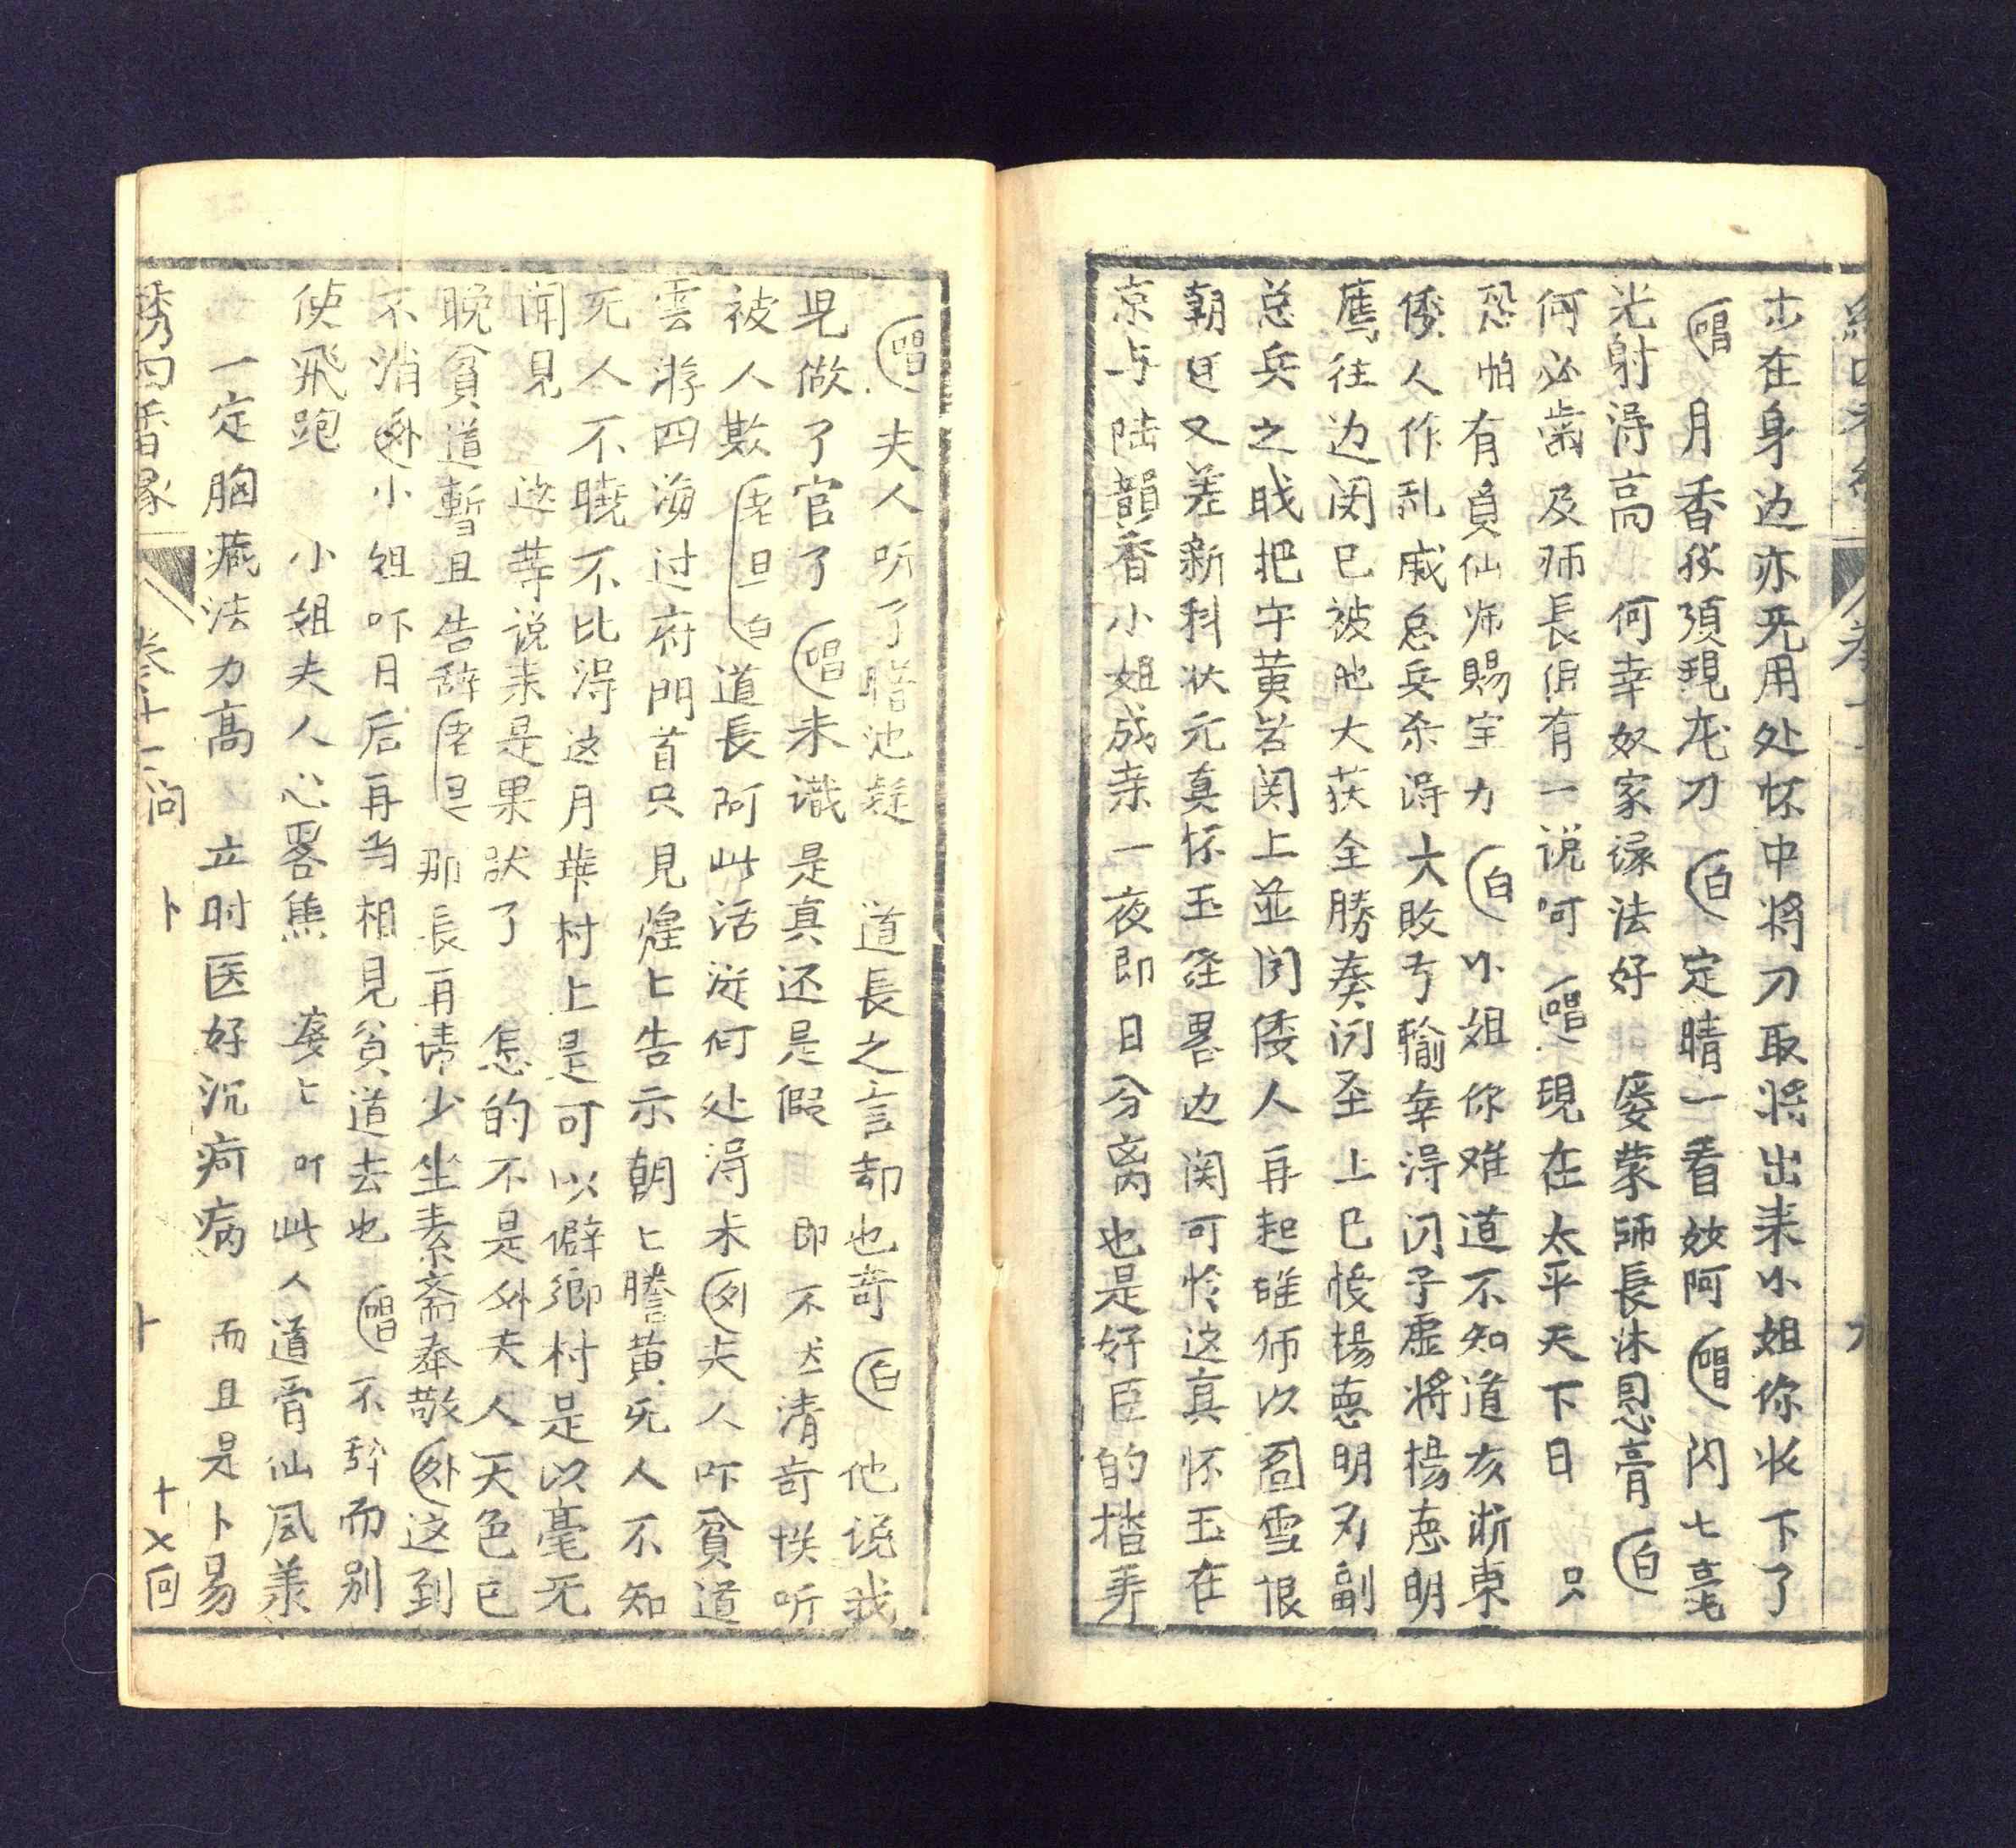 在身边亦无用处怀中将刀取将出来小姐你收下了
唱 月香移須現龙刀 白 定晴一看妙阿 唱 闪七毫
光射得高 何幸奴家逯法好 屡蒙師長沐恩膏 白
何必歯及師長但有一说呵 唱 現在太平天下日 只
恐怕有負仙师賜宝力 白 小姐你难道不知道亥浙東
倭人作乱戚总兵杀得大敗亏輸幸得闪子虚将楊悳明
鹰往边関已被他大获全勝奏闪圣上已悛楊悳明为副
总兵之职把守黄岩関上並閃倭人再起雄师以啚雪恨
朝廷又差新科状元真怀玉経畧边関可怜这真怀玉在
京与陆韻香小姐成亲一夜即日分离也是好臣的揩弄
唱 夫人听了暗沈疑 道長之言却也奇 白 他说我
児做了官了 唱 未識是真还是假 即不 清奇悮听
被人欺 老旦白 道長阿此话従何处得来 外 夫人吓貧道
雲游四海过府門首只見煌匕告示朝匕謄黄无人不知
无人不曉不比得这月華村上是可以僻鄉村是以毫无
聞見 这等说来是果状了 怎的不是外夫人天色已
晚貧道暫且告辞 老旦 那長再請少坐素斋奉敬 外 这到
不消 外 小姐吓日后再当相見貧道去也 唱 不辞而别
使飛跑 小姐夫人心畧焦 䘮匕听此人道骨仙風美
一定胸藏法力高 立时医好沉疴病 而且是卜易
绣四香缘 卷十二 问 卜 十 十乂回